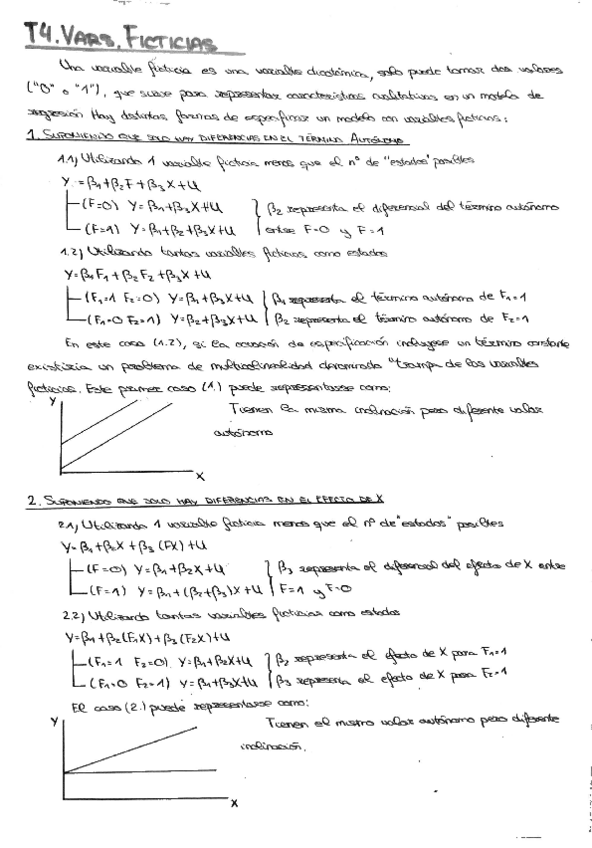 T4. VARS. FICTICIAS
Una variable ficticia es una variable dicotómica, solo puede tomar dos valores
("0" o "1"), que sirve para representar características cualitativas en un modelo de
regresión. Hay distintas formas de especificar un modelo con variables ficticias:
1. SUPONIENDO QUE SOLO HAY DIFERENCIAS EN EL TÉRMINO AUTÓNOMO
1.1) Utilizando 1 variable ficticia menos que el nº de "estados" posibles
Y = β1 + β2F + β3X + U
(F=0) Y = β1 + β3X + U } β2 representa el diferencial del término autónomo
(F=1) Y = β1 + β2 + β3X + U entre F=0 y F=1
1.2) Utilizando tantas variables ficticias como estados
Y = β1F1 + β2F2 + β3X + U
(F1=1 F2=0) Y = β1 + β3X + U } β1 representa el término autónomo de F1=1
(F1=0 F2=1) Y = β2 + β3X + U β2 representa el término autónomo de F2=1
En este caso (1.2), si la ecuación de especificación incluyese un término constante
existiría un problema de multicolinealidad denominado "trampa de las variables
ficticias. Este primer caso (1.) puede representarse como:
Y
Tienen la misma inclinación pero diferente valor
autónomo
X
2. SUPONIENDO QUE SOLO HAY DIFERENCIAS EN EL EFECTO DE X
2.1) Utilizando 1 variable ficticia menos que el nº de "estados" posibles
Y = β1 + β2X + β3 (FX) + U
(F=0) Y = β1 + β2X + U } β3 representa el diferencial del efecto de X entre
(F=1) Y = β1 + (β2 + β3)X + U F=1 y F=0
2.2) Utilizando tantas variables ficticias como estados
Y = β1 + β2 (F1X) + β3 (F2X) + U
(F1=1 F2=0) Y = β1 + β2X + U } β2 representa el efecto de X para F1=1
(F1=0 F2=1) Y = β1 + β3X + U β3 representa el efecto de X para F2=1
El caso (2.) puede representarse como:
Y
Tienen el mismo valor autónomo pero diferente
inclinación.
X